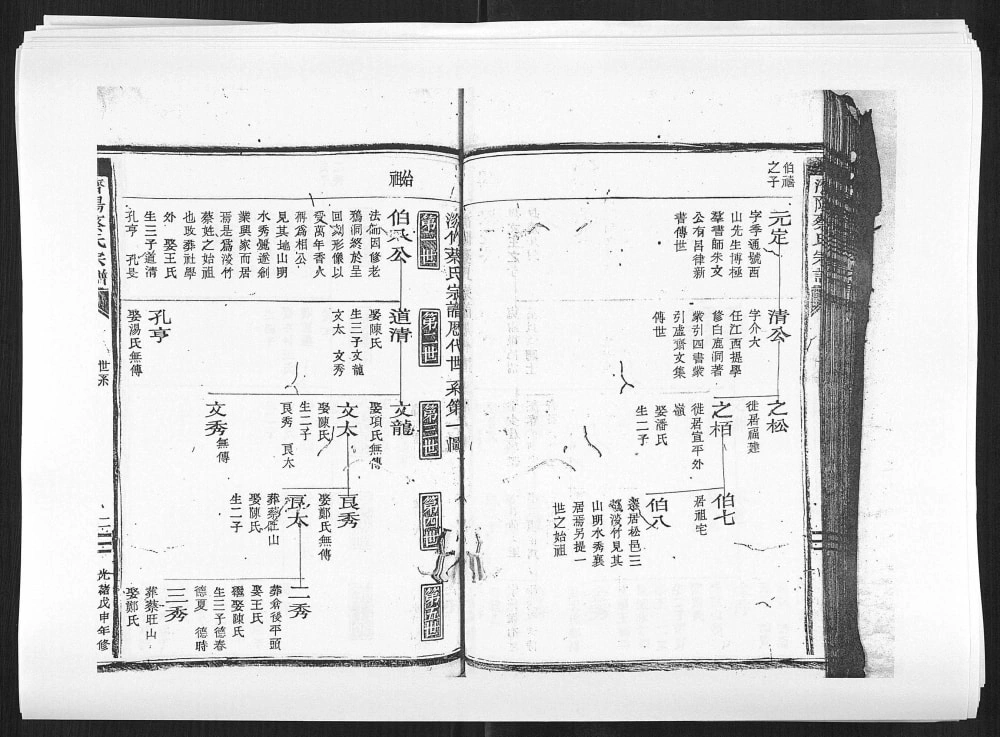 伯禧
之子
元定
字季通號西
山先生博極
羣書師朱文
公有呂律新
書傳世
清公
字介大
任江西提學
修白鹿洞著
蒙引四書蒙
引虛齋文集
傳世
之松
徙居福建
之栢
徙居宣平外
嶺
娶潘氏
生二子
伯七
居祖宅
伯八
居松邑三
淩竹見其
山明水秀襄
居焉另提一
世之始祖
淩竹蔡氏宗譜歷代世系第一圖
第一世
第二世
第三世
第四世
第五世
始
祖
伯八公
法師因修老
鴉洞終於呈
回刻形像以
受萬年香火
稱為相公
見其地山明
水秀儼遂創
業興家而居
焉是為淩竹
蔡姓之始祖
也改葬社學
外 娶王氏
生三子道清
孔亨 孔
道清
娶陳氏
生三子文龍
文太 文秀
孔亨
娶湯氏無傳
文龍
娶項氏無傳
文太
娶陳氏
生二子
良秀 良太
文秀 無傳
良秀
娶鄭氏無傳
良太
葬蔡旺山
娶陳氏
生二子
二秀
葬倉後平頭
娶王氏
繼娶陳氏
生三子德春
德夏 德時
三秀
葬蔡旺山
娶鄭氏
濟陽蔡氏宗譜
世系
二
光緒戊申年修